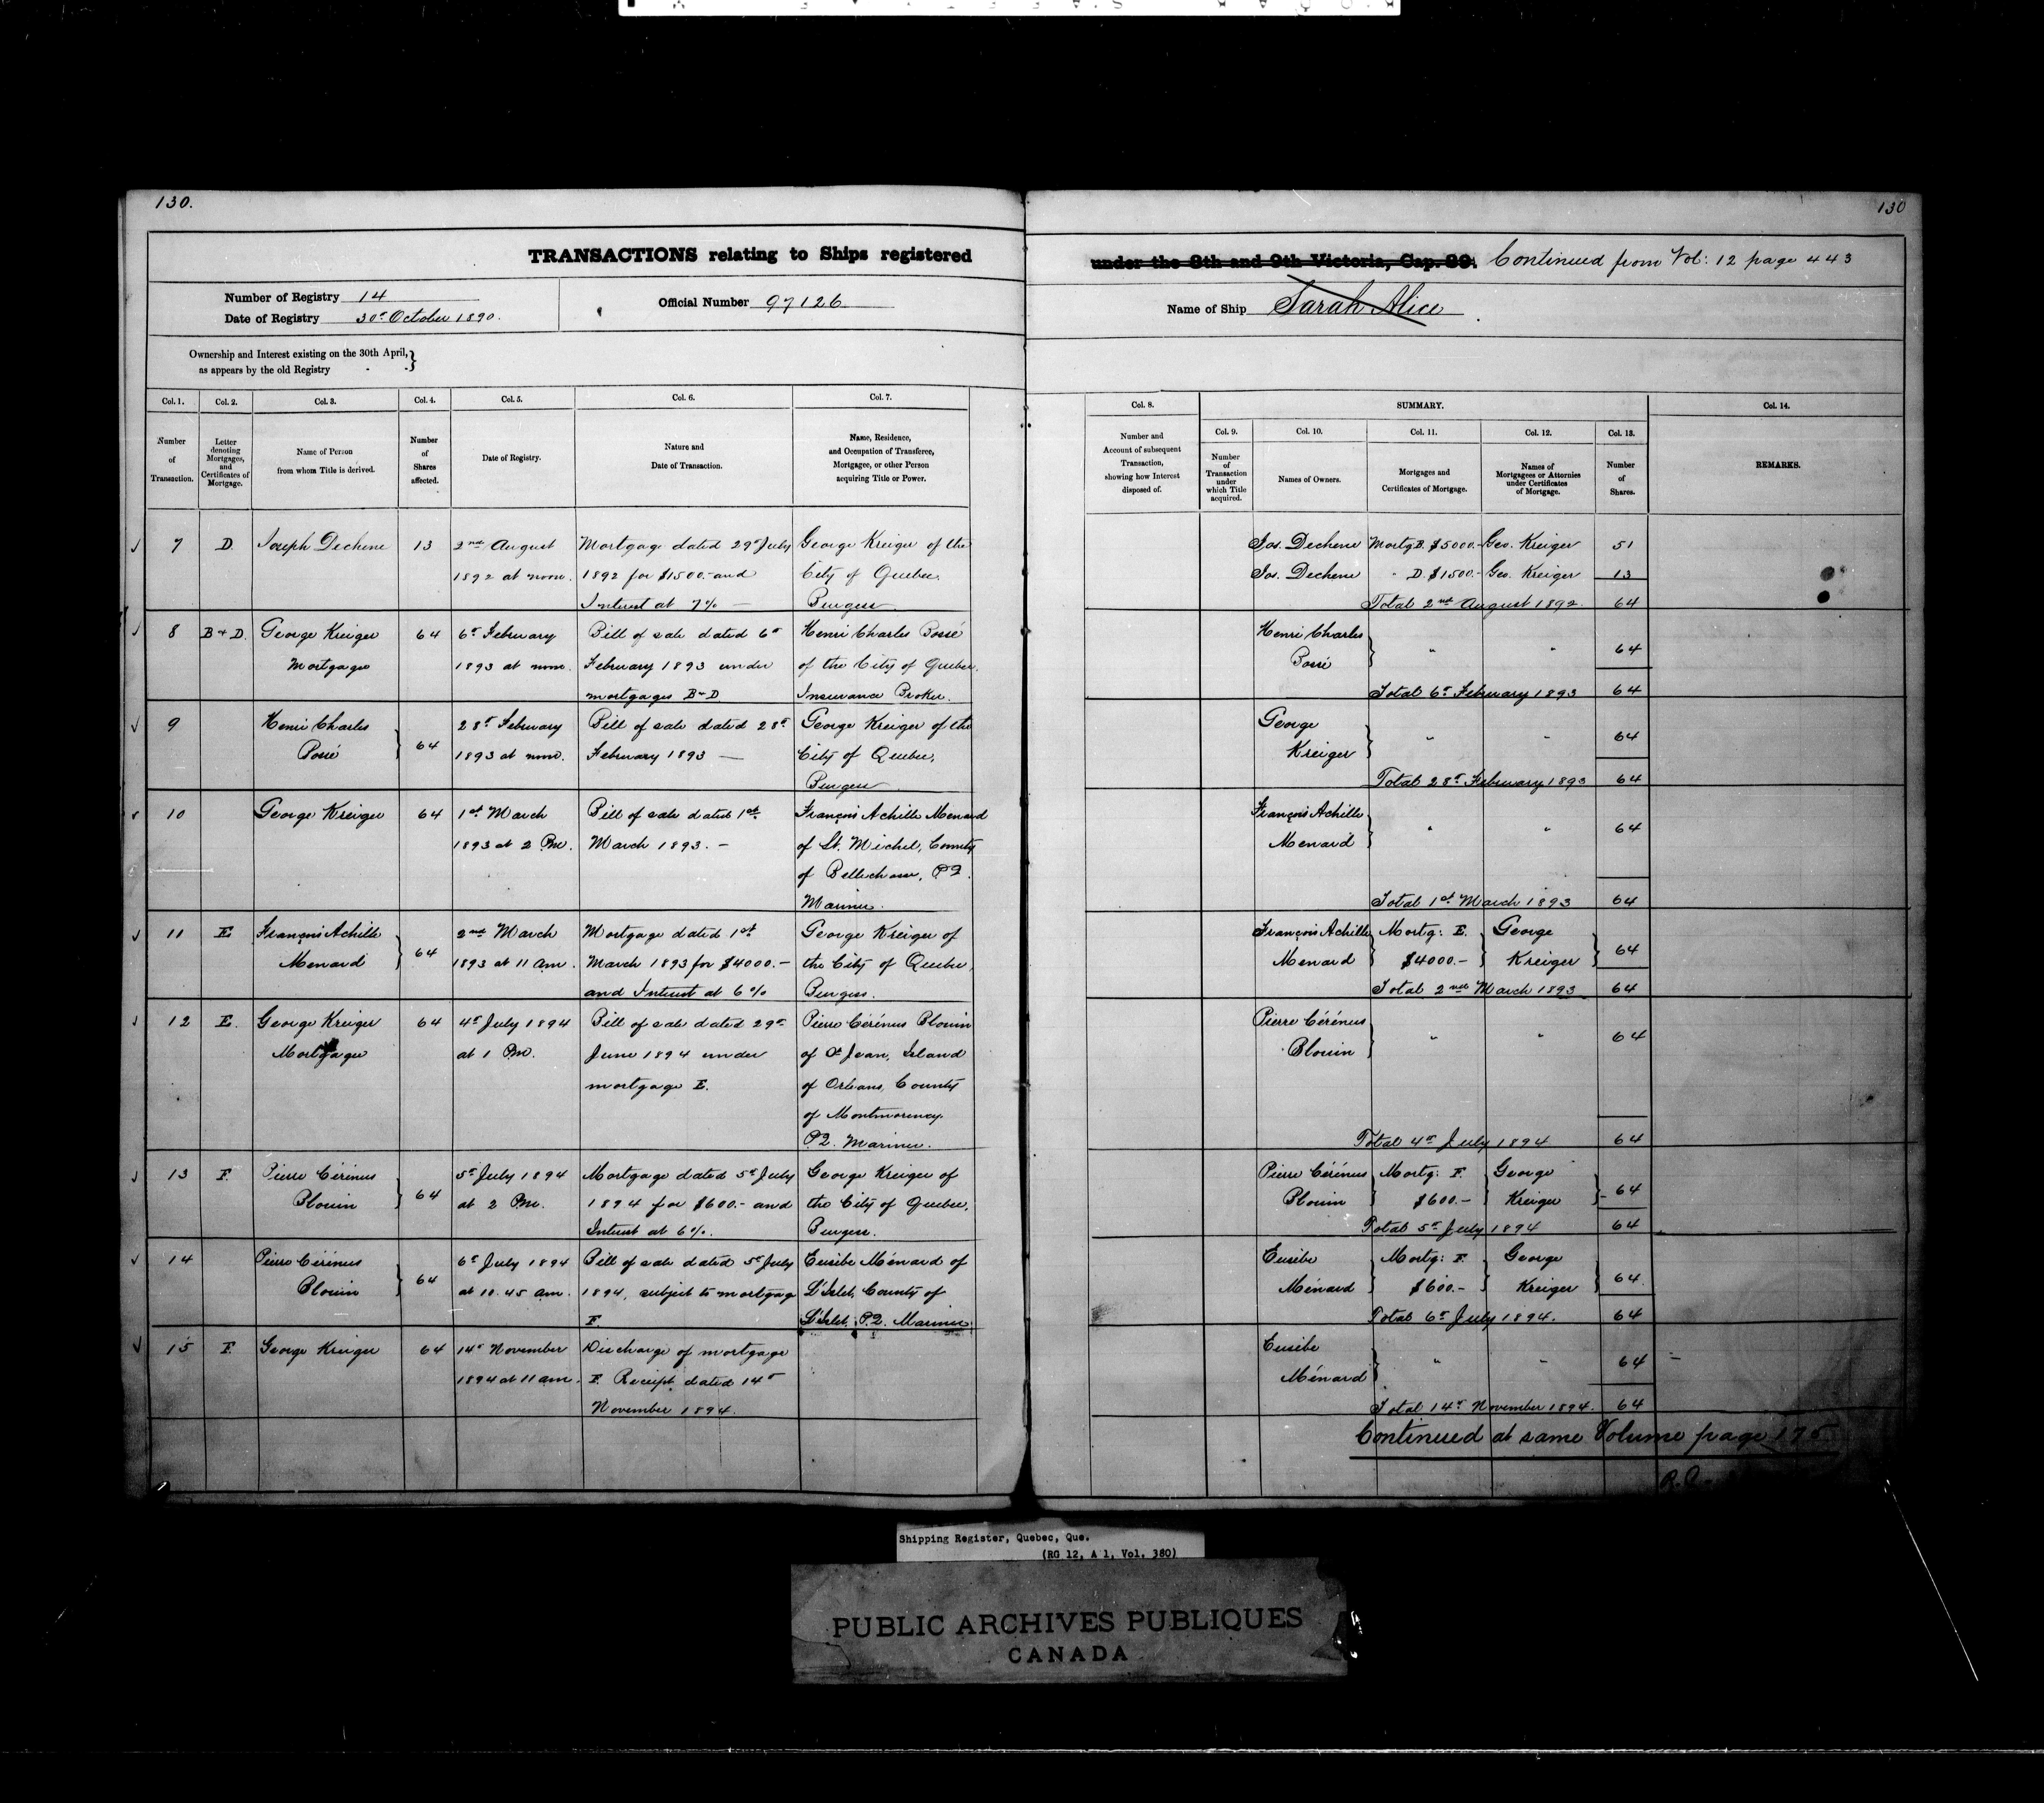 130.
130
TRANSACTIONS relating to Ships registered
under the 8th and 9th Victoria, Cap. 89. Continued from Vol: 12 page 443
Number of Registry 14
Date of Registry 30th October 1890.
Official Number 97126
Name of Ship Sarah Alice
Ownership and Interest existing on the 30th April,
as appears by the old Registry
Col. 1.
Number
of
Transaction.
Col. 2.
Letter
denoting
Mortgages,
and
Certificates of
Mortgage.
Col. 3.
Name of Person
from whom Title is derived.
Col. 4.
Number
of
Shares
affected.
Col. 5.
Date of Registry.
Col. 6.
Nature and
Date of Transaction.
Col. 7.
Name, Residence,
and Occupation of Transferee,
Mortgagee, or other Person
acquiring Title or Power.
Col. 8.
Number and
Account of subsequent
Transaction,
showing how Interest
disposed of.
SUMMARY.
Col. 9.
Number
of
Transaction
under
which Title
acquired.
Col. 10.
Names of Owners.
Col. 11.
Mortgages and
Certificates of Mortgage.
Col. 12.
Names of
Mortgagees or Attornies
under Certificates
of Mortgage.
Col. 13.
Number
of
Shares.
Col. 14.
REMARKS.
7 D. Joseph Dechene 13 2nd August Mortgage dated 29th July George Kreiger of the
1892 at noon. 1892 for $1500.- and City of Quebec.
Interest at 7% — Burgess.
Jos. Dechene Mortg B. $5000.- Geo. Kreiger 51
Jos. Dechene " D. $1500.- Geo. Kreiger 13
Total 2nd August 1892. 64
8 B & D. George Kreiger 64 6th February Bill of sale dated 6th Henri Charles Bossé
Mortgagee 1893 at noon. February 1893 under of the City of Quebec.
mortgages B & D Insurance Broker.
Henri Charles
Bossé " " 64
Total 6th February 1893 64
9 Henri Charles 28th February Bill of sale dated 28th George Kreiger of the
Bossé 64 1893 at noon. February 1893 — City of Quebec,
Burgess
George
Kreiger " " 64
Total 28th February 1893 64
10 George Kreiger 64 1st March Bill of sale dated 1st François Achille Menard
1893 at 2 Pm. March 1893. — of St. Michel, County
of Bellechasse, PQ.
Mariner.
François Achille
Menard " " 64
Total 1st March 1893 64
11 E. François Achille 2nd March Mortgage dated 1st George Kreiger of
Menard 64 1893 at 11 am. March 1893 for $4000.- the City of Quebec,
and Interest at 6% Burgess.
François Achille Mortg: E. George
Menard $4000.- Kreiger 64
Total 2nd March 1893 64
12 E. George Kreiger 64 4th July 1894 Bill of sale dated 29th Pierre Cérénus Blouin
Mortgagee at 1 Pm. June 1894 under of St Jean, Island
mortgage E. of Orleans, County
of Montmorency.
PQ. Mariner.
Pierre Cérénus
Blouin " " 64
Total 4th July 1894 64
13 F. Pierre Cérénus 5th July 1894 Mortgage dated 5th July George Kreiger of
Blouin 64 at 2 Pm. 1894 for $600.- and the City of Quebec,
Interest at 6%. Burgess.
Pierre Cérénus Mortg: F. George
Blouin $600.- Kreiger 64
Total 5th July 1894 64
14 Pierre Cérénus 6th July 1894 Bill of sale dated 5th July Eusèbe Ménard of
Blouin 64 at 10.45 am. 1894, subject to mortgage L'Islet, County of
F. L'Islet, P.Q. Mariner
Eusèbe Mortg: F. George
Ménard $600.- Kreiger 64.
Total 6th July 1894. 64
15 F. George Kreiger 64 14th November Discharge of mortgage
1894 at 11 am. F. Receipt dated 14th
November 1894.
Eusèbe
Ménard " " 64
Total 14th November 1894. 64
Continued at same Volume page 175
Shipping Register, Quebec, Que.
(RG 12, A 1, Vol. 380)
PUBLIC ARCHIVES PUBLIQUES
CANADA